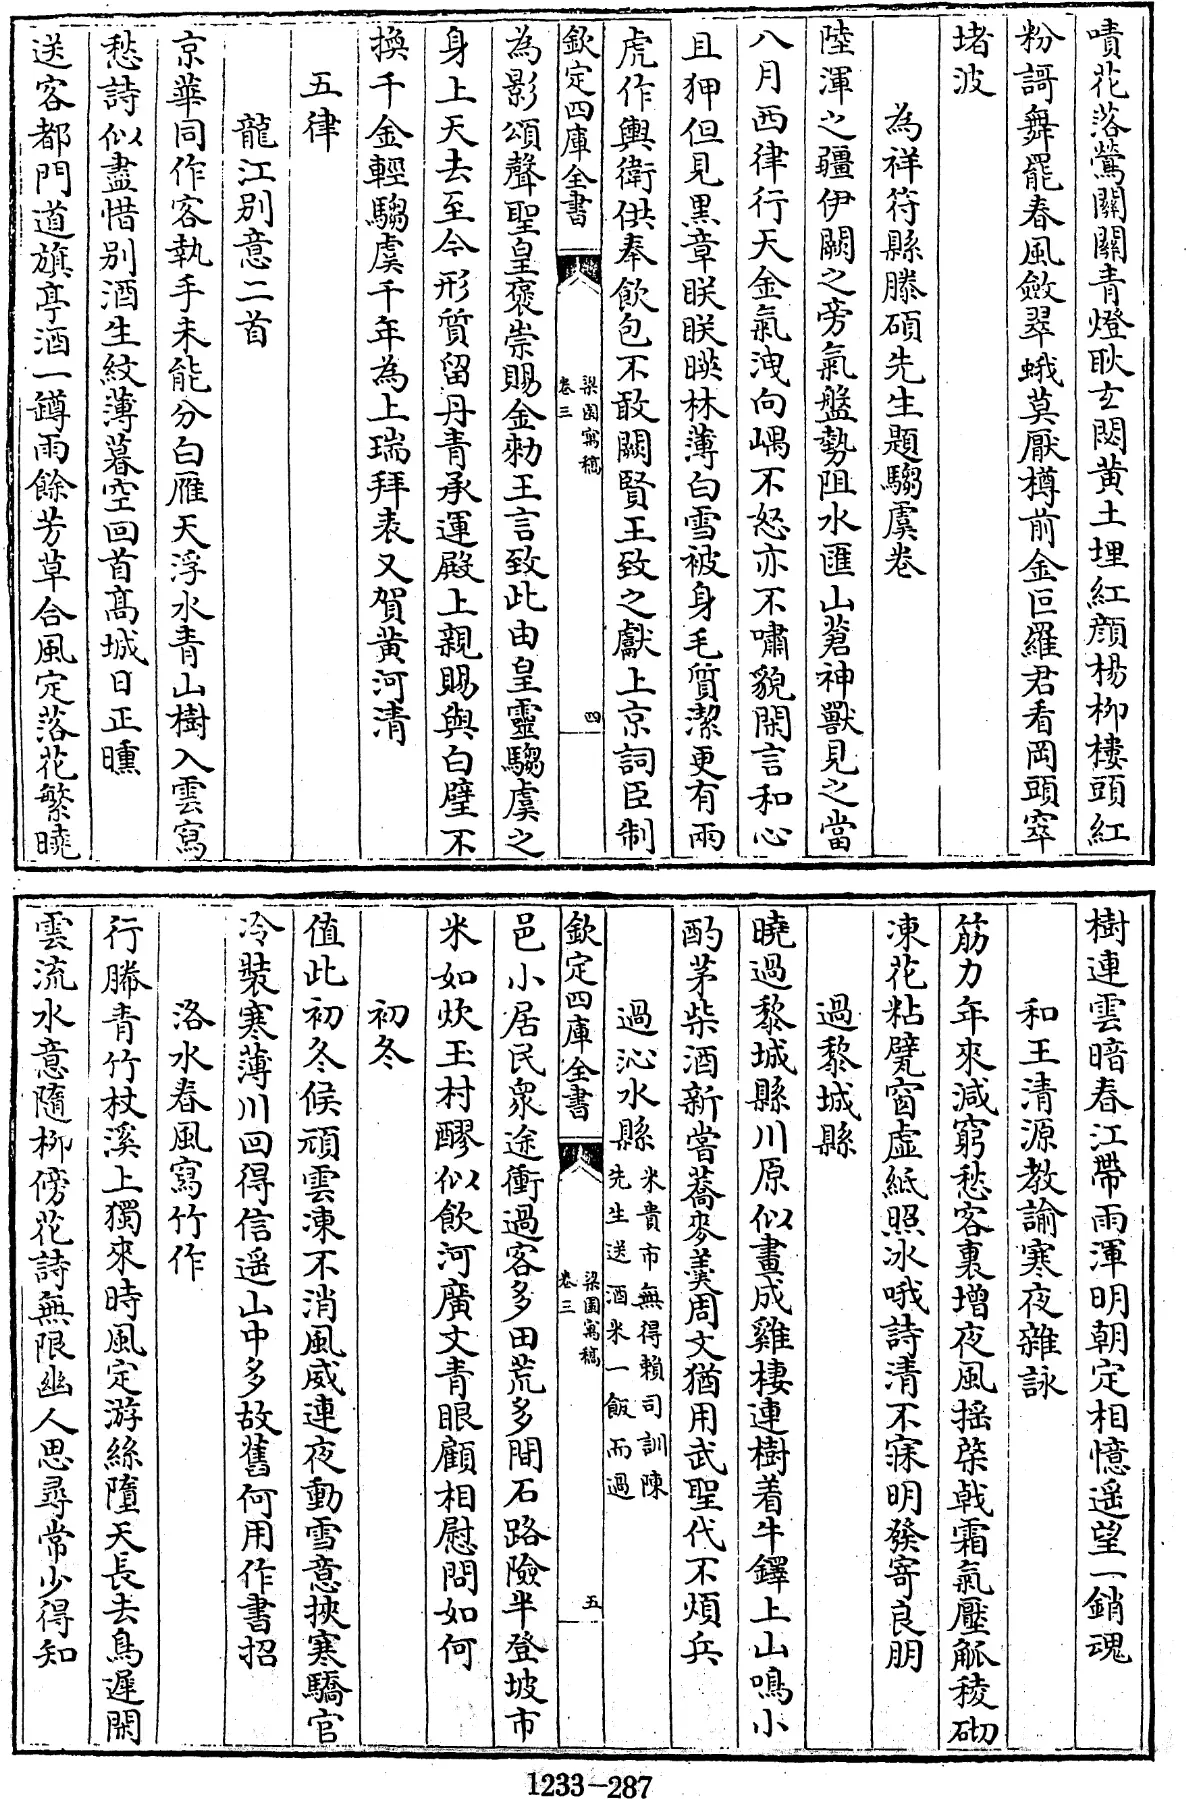 嘖花落鶯關關青燈耿玄閟黄土埋紅顔楊栁樓頭紅
粉謌舞罷春風斂翠蛾莫厭樽前金叵羅君看岡頭窣
堵波
為祥符縣滕碩先生題騶虞卷
陸渾之疆伊闕之旁氣盤勢阻水匯山蒼神獸見之當
八月西律行天金氣洩向嵎不怒亦不嘯貌閑言和心
且狎但見黒章睒睒暎林薄白雪被身毛質潔更有兩
虎作輿衛供奉飲包不敢闕賢王致之獻上京詞臣制
欽定四庫全書
梁園寓稿
卷三
四
為影頌聲聖皇褒崇賜金勑王言致此由皇靈騶虞之
身上天去至今形質留丹青承運殿上親賜與白璧不
換千金輕騶虞千年為上瑞拜表又賀黄河清
五律
龍江别意二首
京華同作客執手未能分白雁天浮水青山樹入雲寫
愁詩似盡惜别酒生紋薄暮空回首髙城日正曛
送客都門道旗亭酒一罇雨餘芳草合風定落花繁曉
樹連雲暗春江帶雨渾明朝定相憶遥望一銷魂
和王清源教諭寒夜雜詠
筋力年來減窮愁客裏增夜風揺棨戟霜氣壓觚稜砌
凍花粘甓窗虚紙照冰哦詩清不寐明發寄良朋
過黎城縣
曉過黎城縣川原似畫成雞棲連樹着牛鐸上山鳴小
酌茅柴酒新嘗蕎麥羮周文猶用武聖代不煩兵
過沁水縣米貴市無得賴司訓陳
先生送酒米一飯而過
欽定四庫全書
梁園寓稿
卷三
五
邑小居民衆途衝過客多田荒多間石路險半登坡市
米如炊玉村醪似飲河廣文青眼顧相慰問如何
初冬
值此初冬候頑雲凍不消風威連夜動雪意挾寒驕官
冷裝寒薄川回得信遥山中多故舊何用作書招
洛水春風寫竹作
行縢青竹杖溪上獨來時風定游絲墮天長去鳥遲閒
雲流水意隨栁傍花詩無限幽人思尋常少得知
1233-287